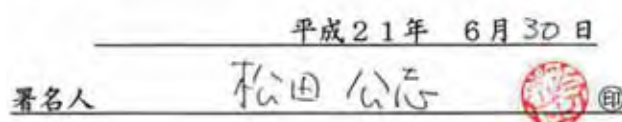 平成21年 6月30日
署名人 松田 公志 ㊞